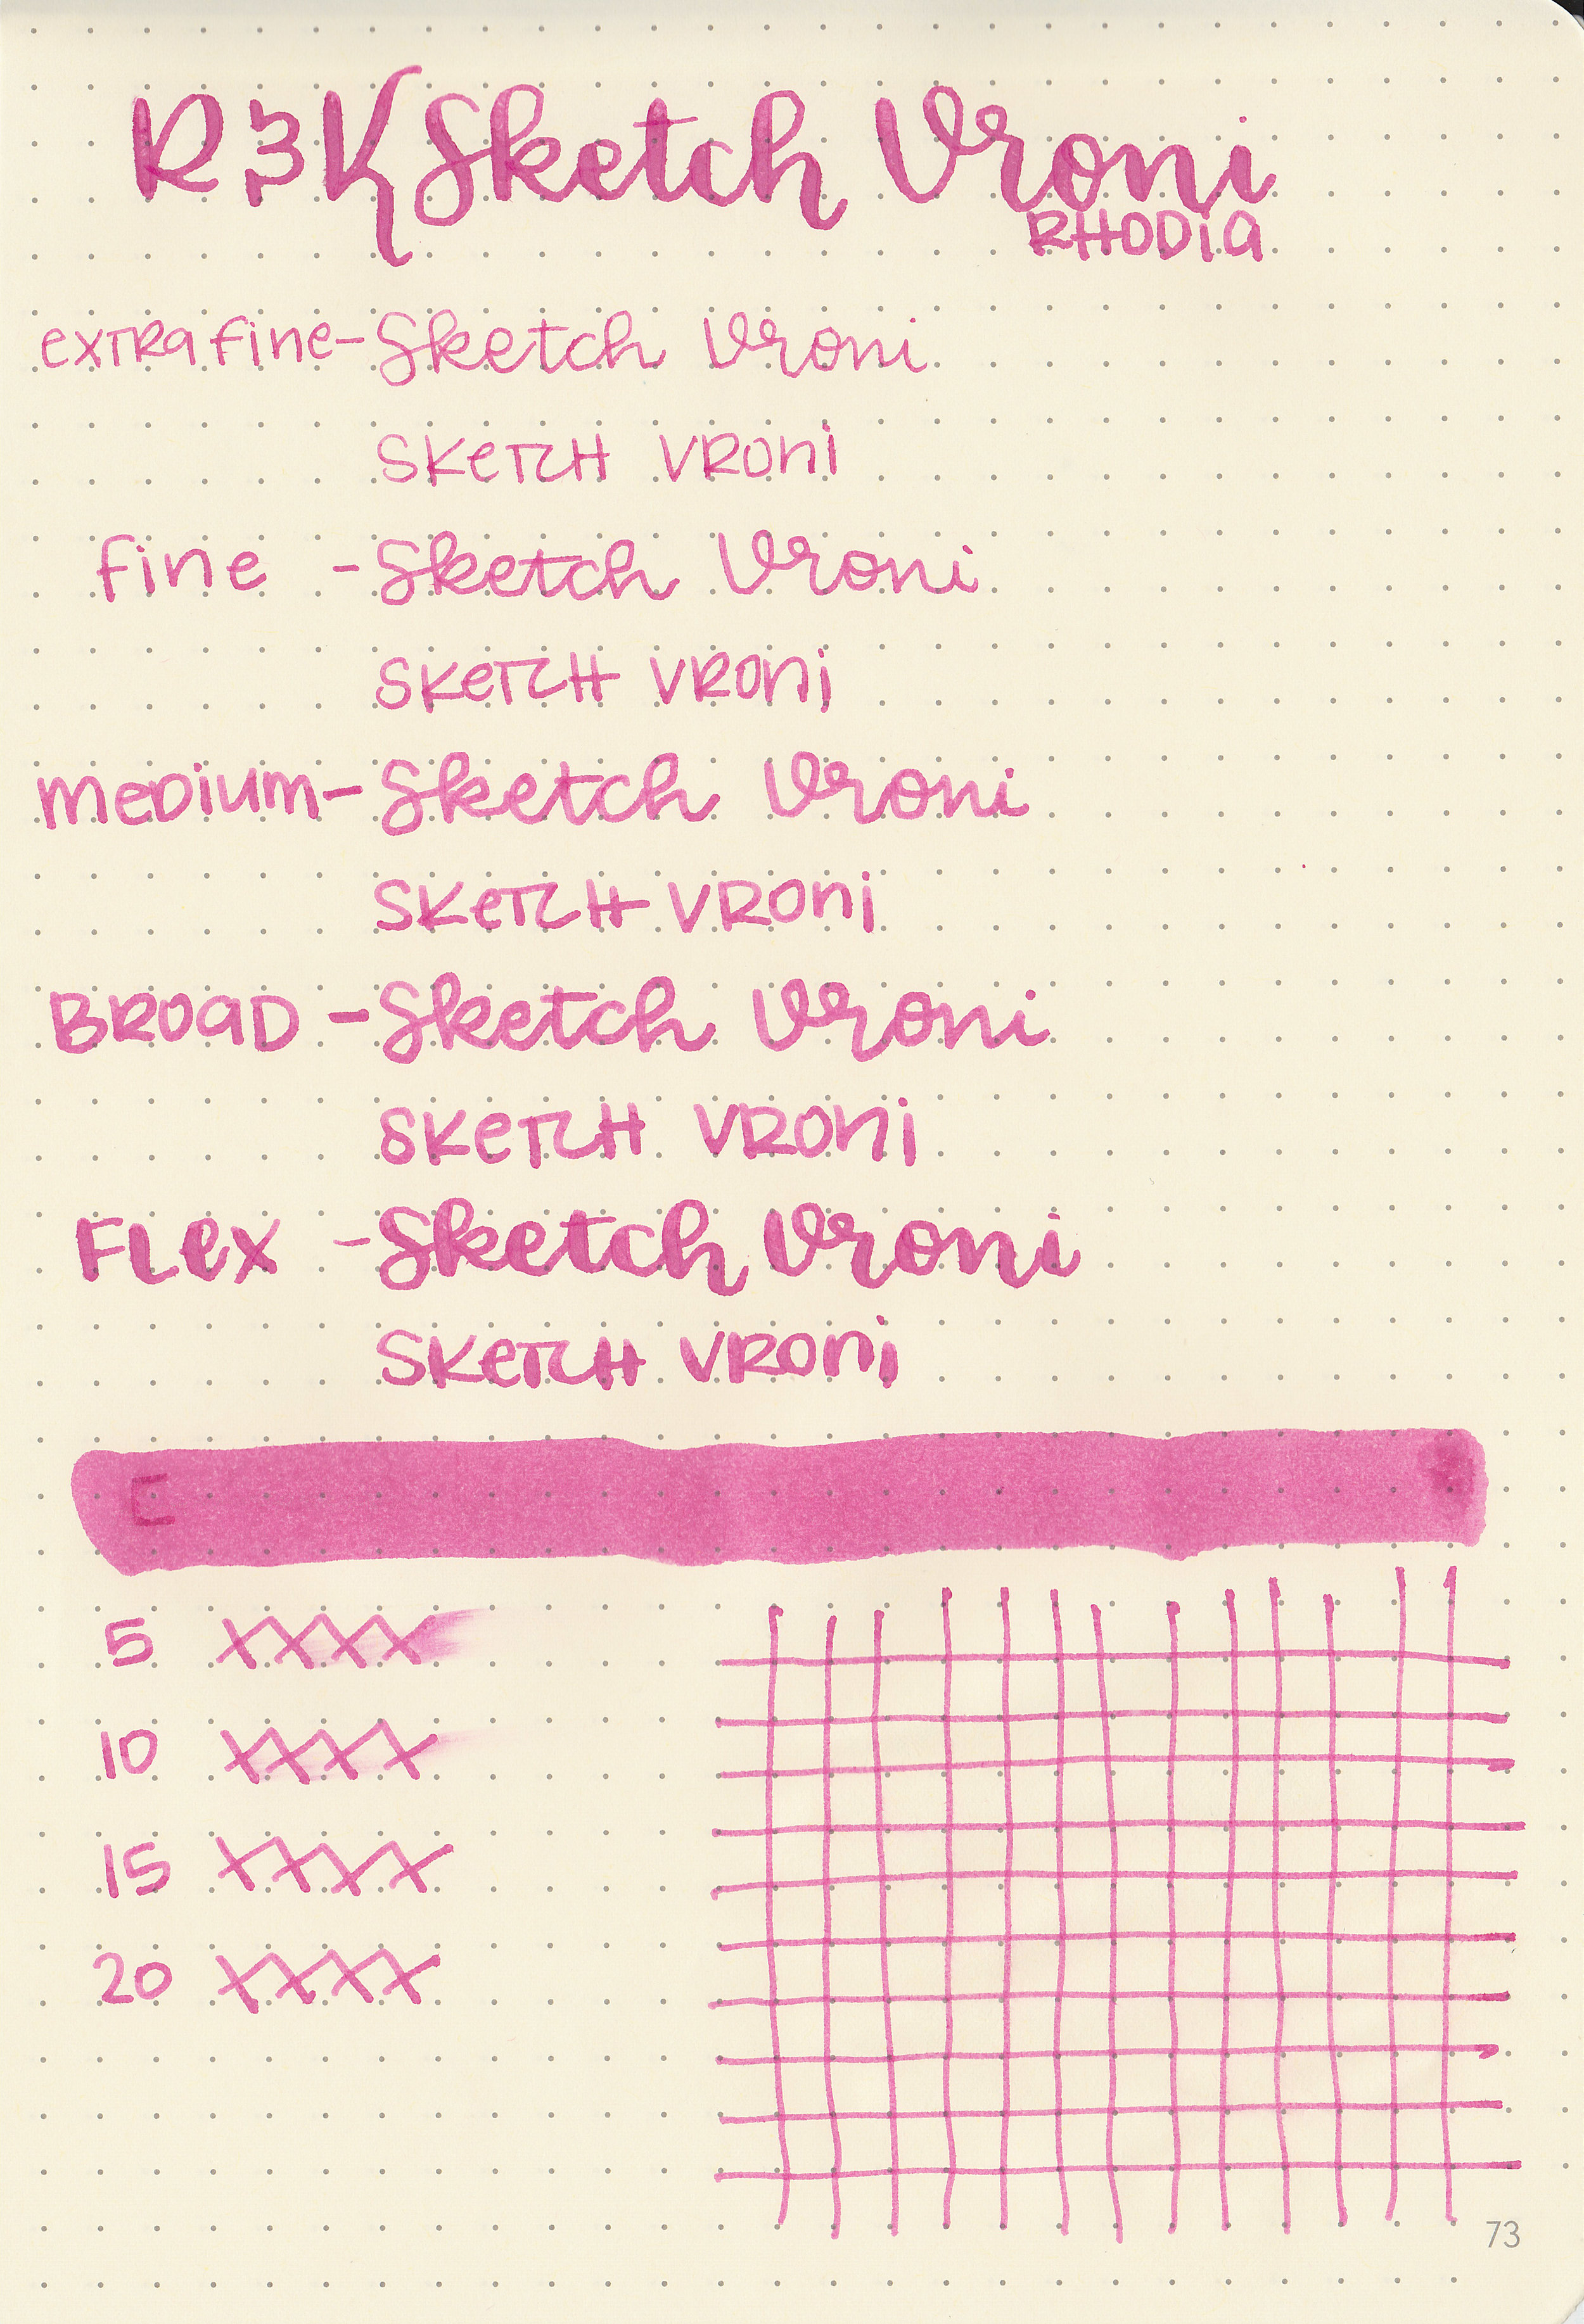 R&K Sketch Vroni
RHODIA
extra fine - Sketch Vroni
SKETCH VRONI
fine - Sketch Vroni
SKETCH VRONI
medium - Sketch Vroni
SKETCH VRONI
BROAD - Sketch Vroni
SKETCH VRONI
FLEX - Sketch Vroni
SKETCH VRONI
5 XXXX
10 XXXX
15 XXXX
20 XXXX
73